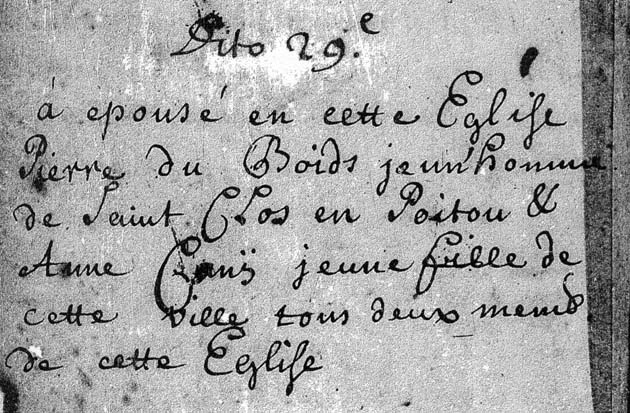 Dito 29.e
á epousé en cette Eglise
Pierre du Boids jeun'homme
de Saint Clos en Poitou &
Anne jeune fille de
cette ville tous deux memb.
de cette Eglise